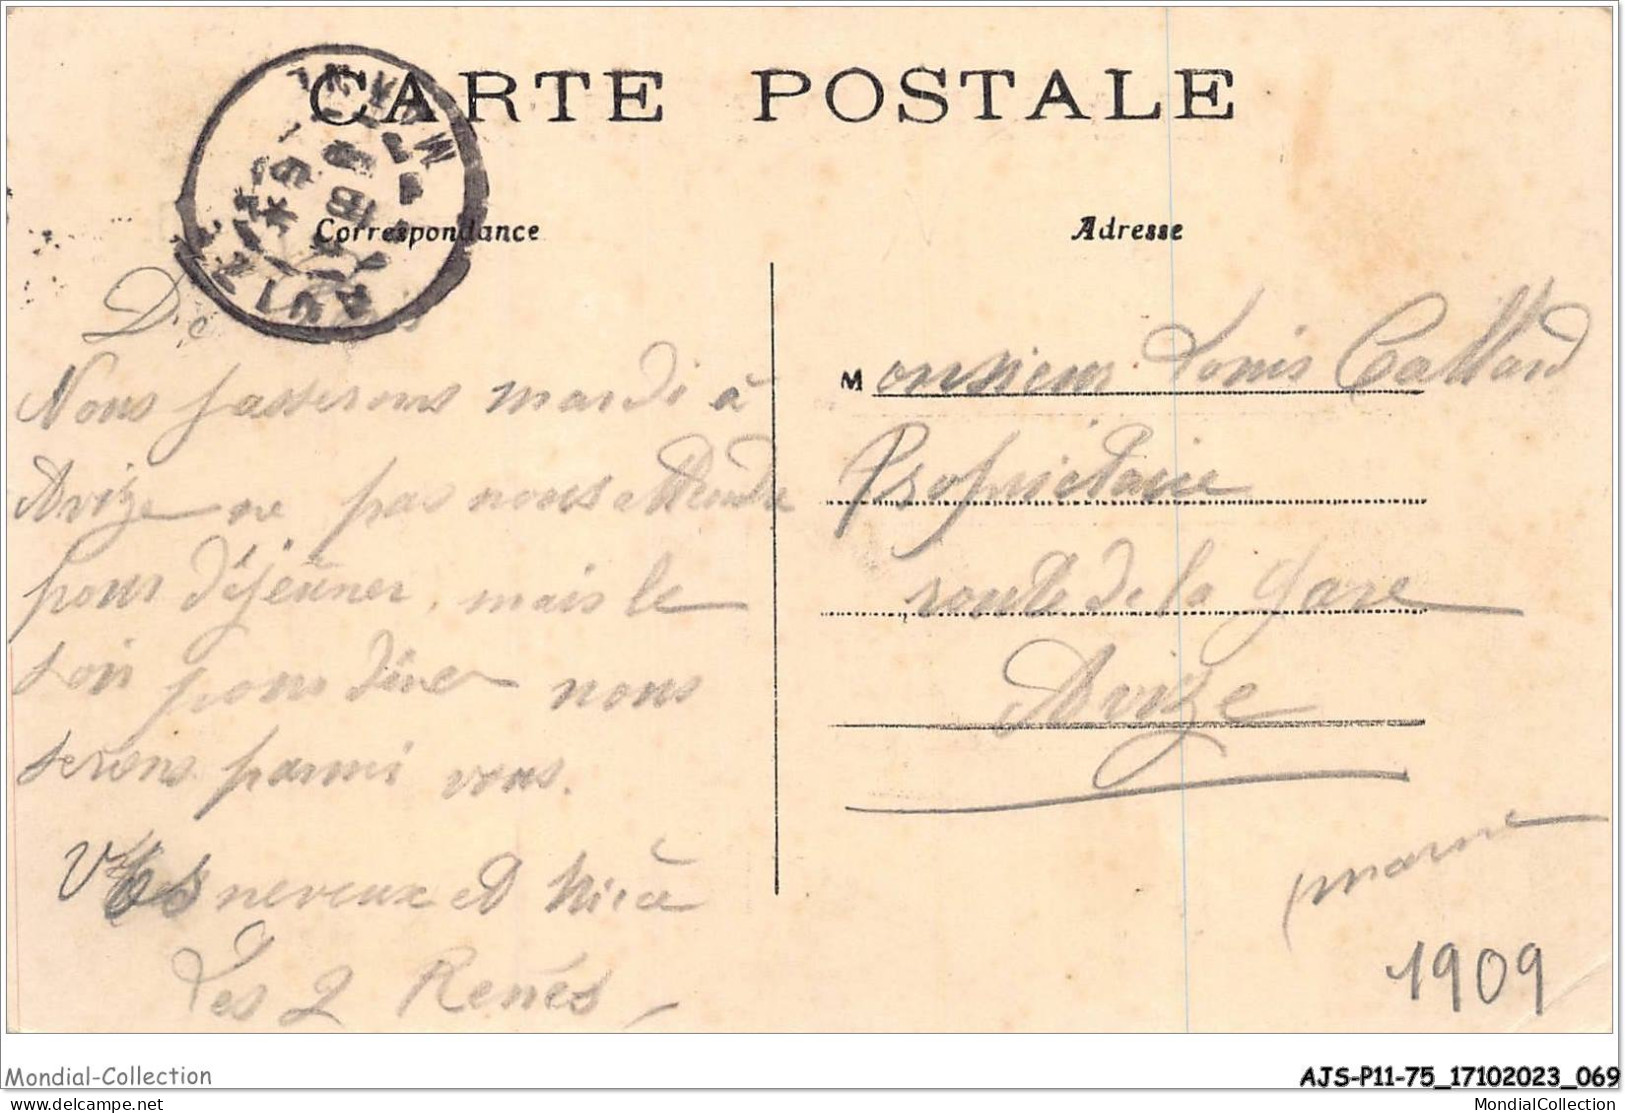 CARTE POSTALE
Correspondance
Adresse
AVIZE
MARNE
Nous passerons mardi à
Avize ne pas nous attendre
pour déjeuner, mais le
soir pour dîner nous
serons parmi vous.
Vtes neveux et Nièce
Les 2 Renés
Monsieur Louis
Propriétaire
route de la Gare
Avize
Marne
1909
Mondial-Collection
AJS-P11-75_17102023_069
delcampe.net
MondialCollection